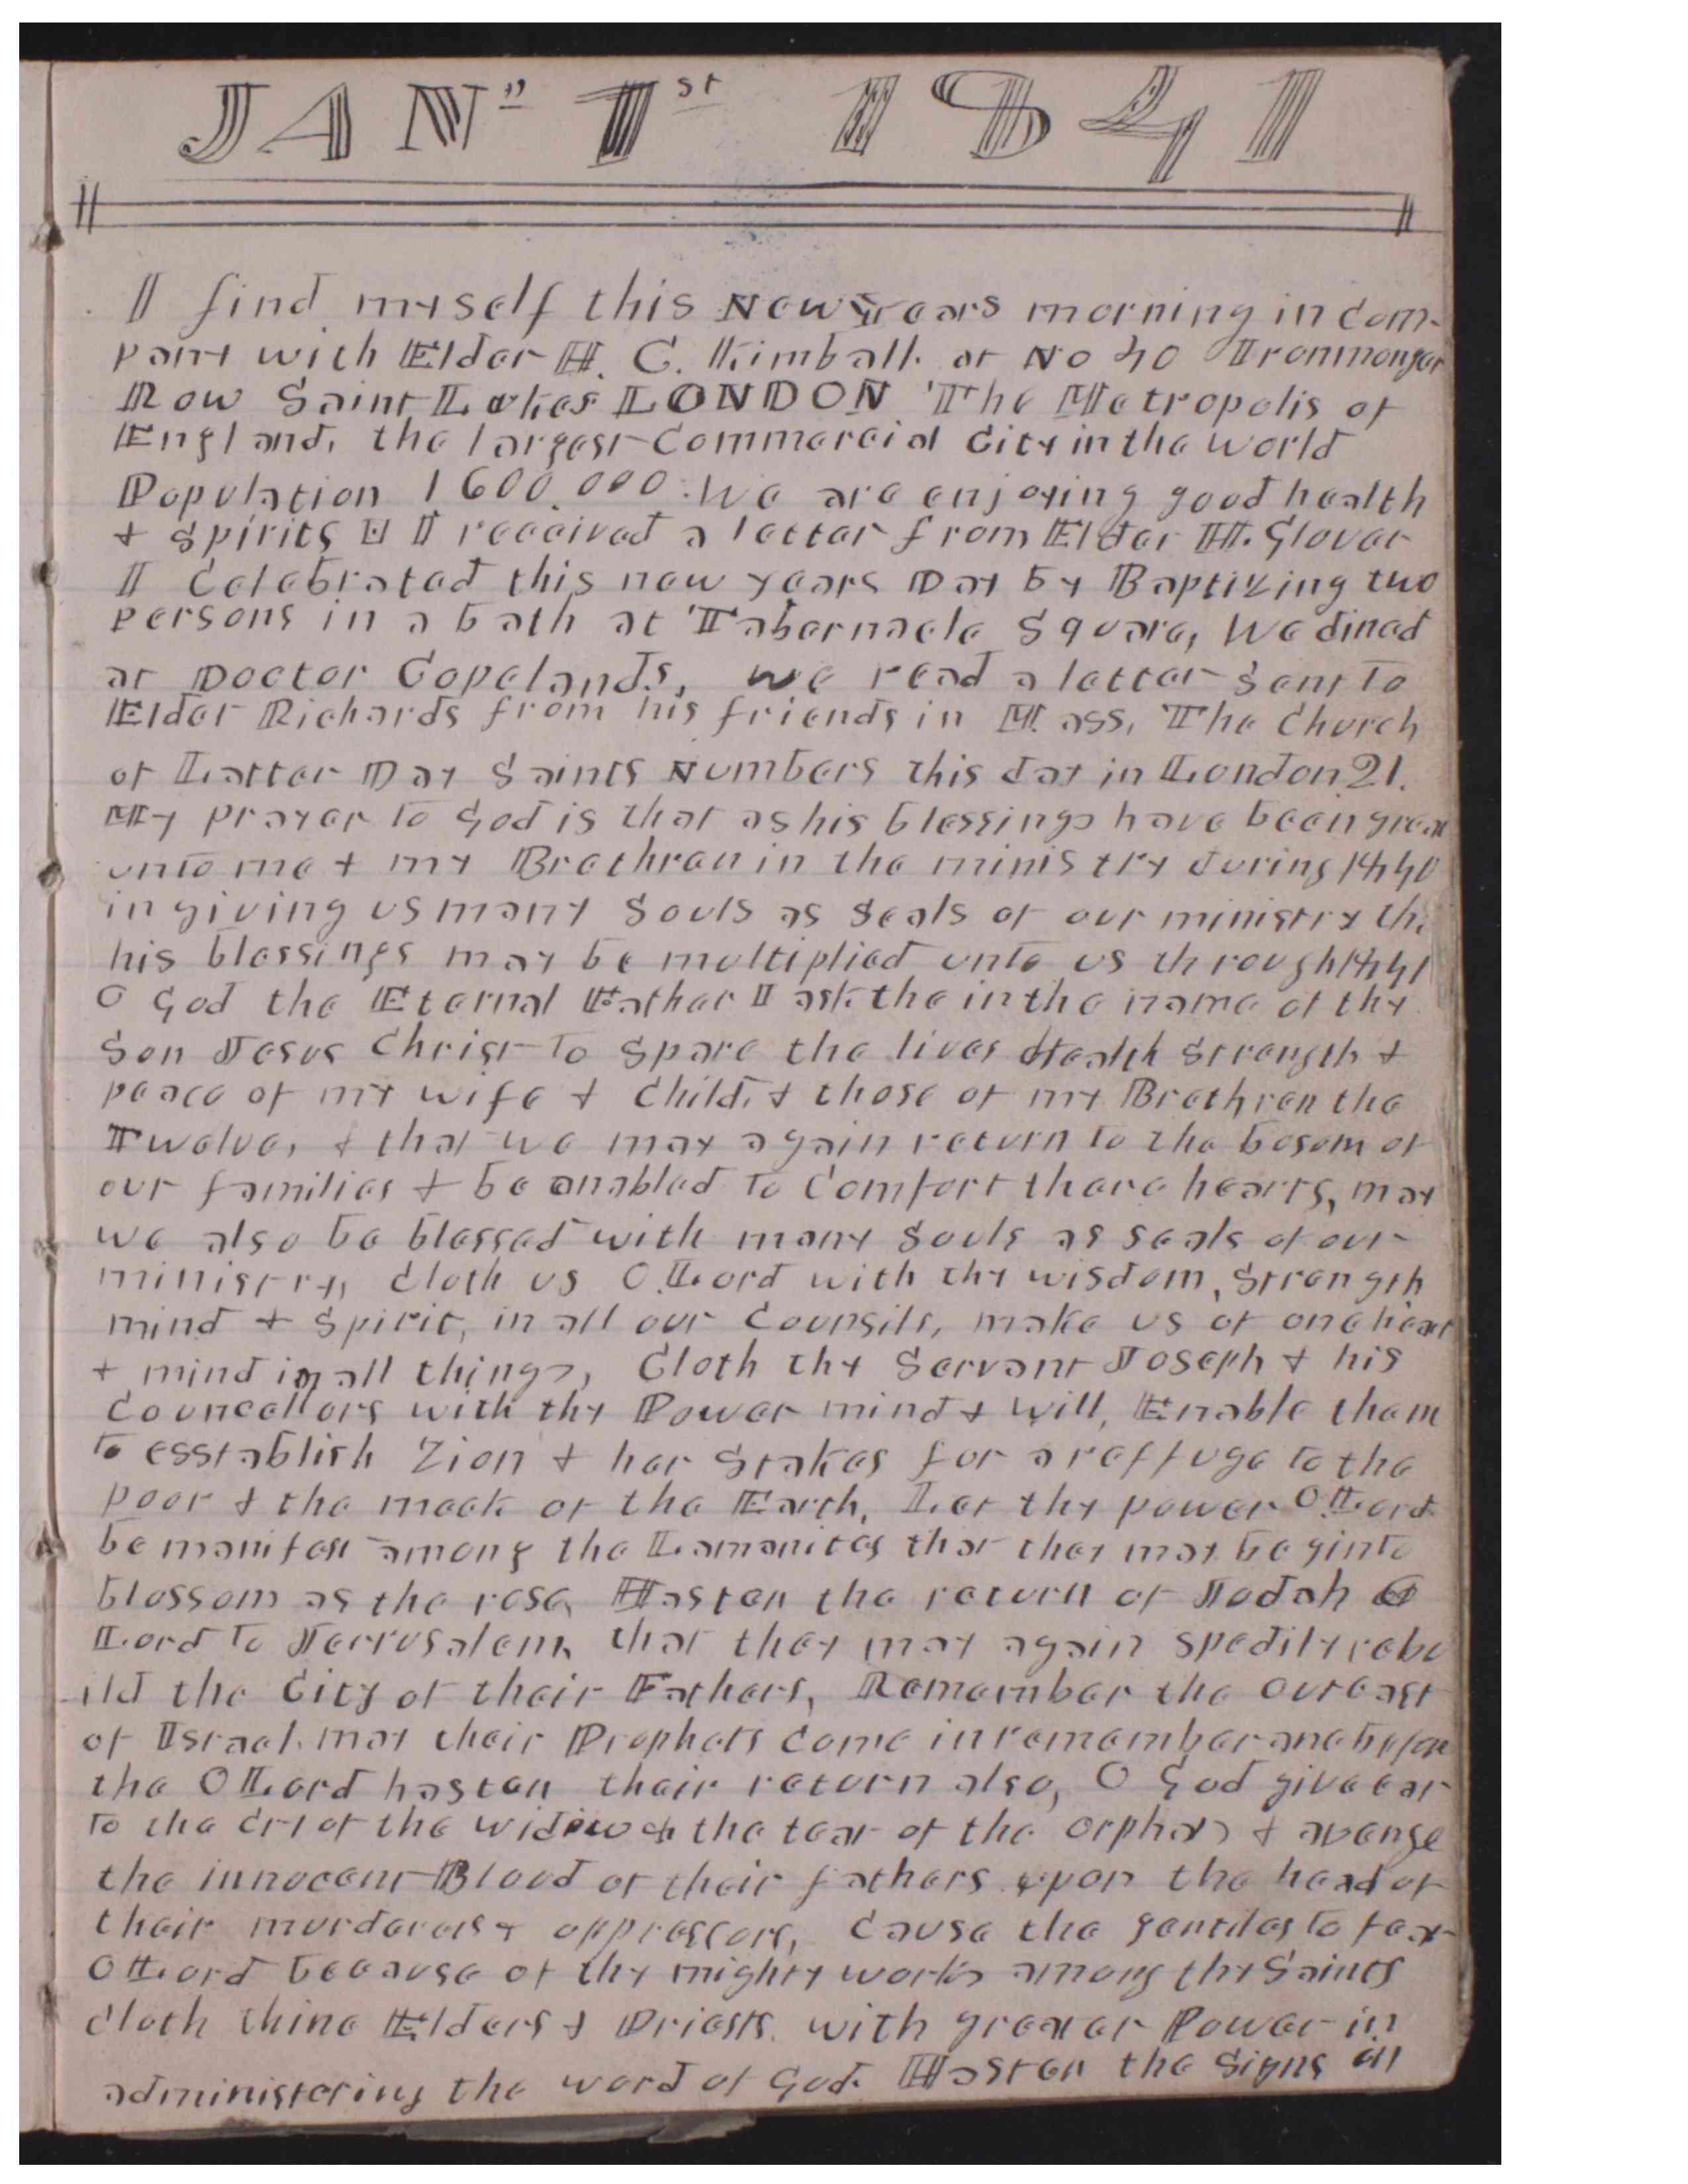 JAN" 1st 1841
I find myself this New Years morning in Com-
pany with Elder H. C. Kimball. at No 40 Ironmonger
Row Saint Lukes LONDON The Metropolis of
England, the largest Commercial City in the world
Population 1600.000. We are enjoying good health
& Spirits I received a letter from Elder H. Glover
I Celebrated this new years Day by Baptizing two
persons in a bath at Tabernacle Square, We dined
at Doctor Copelands, we read a letter Sent To
Elder Richards from his friends in Mass, The Church
of Latter Day Saints Numbers this day in London 21.
My prayer to God is that as his blessings have been great
unto me & my Brethren in the ministry during 1840
in giving us many Souls as Seals of our ministry th
his blessings may be multiplied unto us through 1841
O God the Eternal Father I ask the in the name of thy
Son Jesus Christ To Spare the lives Health Strength &
peace of my wife & Child, & those of my Brethren the
Twelve, & that we may again return to the bosom of
our families & be enabled to Comfort there hearts, may
we also be blessed with many Souls as seals of our
ministry, Cloth us O Lord with thy wisdom, Strength
mind & Spirit, in all our Counsils, make us of one heart
& mind in all things, Cloth thy Servant Joseph & his
Councellors with thy Power mind & will, Enable them
to esstablish Zion & her Stakes for a reffuge to the
poor & the meek of the Earth, Let thy power O Lord
be manifest among the Lamanites that they may begin to
blossom as the rose, Hasten the return of Judah O
Lord To Jerrusalem, that they may again spedily rebu
ild the City of their Fathers, Remember the outcast
of Israel. may their Prophets Come in rememberance before
the O Lord hasten their return also, O God give ear
to the cry of the widow & the tear of the orphan & avenge
the innocent Blood of their fathers upon the head of
their murderers & oppressors, Cause the gentiles to fear
O Lord because of thy mighty works among thy Saints
Cloth thine Elders & Priests. with greater Power in
administering the word of God. Hasten the Signs in